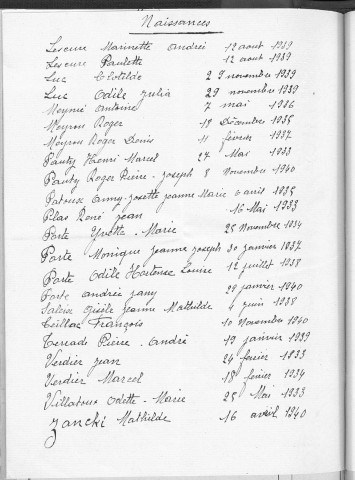 Naissances
Lescure Marinette Andrée 12 aout 1939
Lescure Paulette 12 aout 1939
Luc Clotilde 29 novembre 1939
Luc Odile Julia 29 novembre 1939
Meynié Antoine 7 mai 1936
Meyrou Roger 18 Décembre 1935
Meyrou Roger Denis 11 février 1937
Pauty Henri Marcel 27 Mai 1933
Pauty Roger Pierre - Joseph 8 Novembre 1940
Patroux Anny Josette Jeanne Marie 6 avril 1935
Pélas René Jean 16 Mai 1933
Porte Yvette - Marie 25 Novembre 1934
Porte Monique Jeanne Joseph 30 janvier 1937
Porte Odile Hortense Louise 12 juillet 1938
Porte Andrée Jany 29 janvier 1940
Salein Gisèle Jeanne Mathilde 4 juin 1938
Teillac François 10 Novembre 1940
Terrade Pierre - André 19 janvier 1939
Verdier Jean 24 fevrier 1933
Verdier Marcel 18 février 1934
Villatoux Odette - Marie 25 Mai 1933
Jancki Mathilde 16 avril 1940